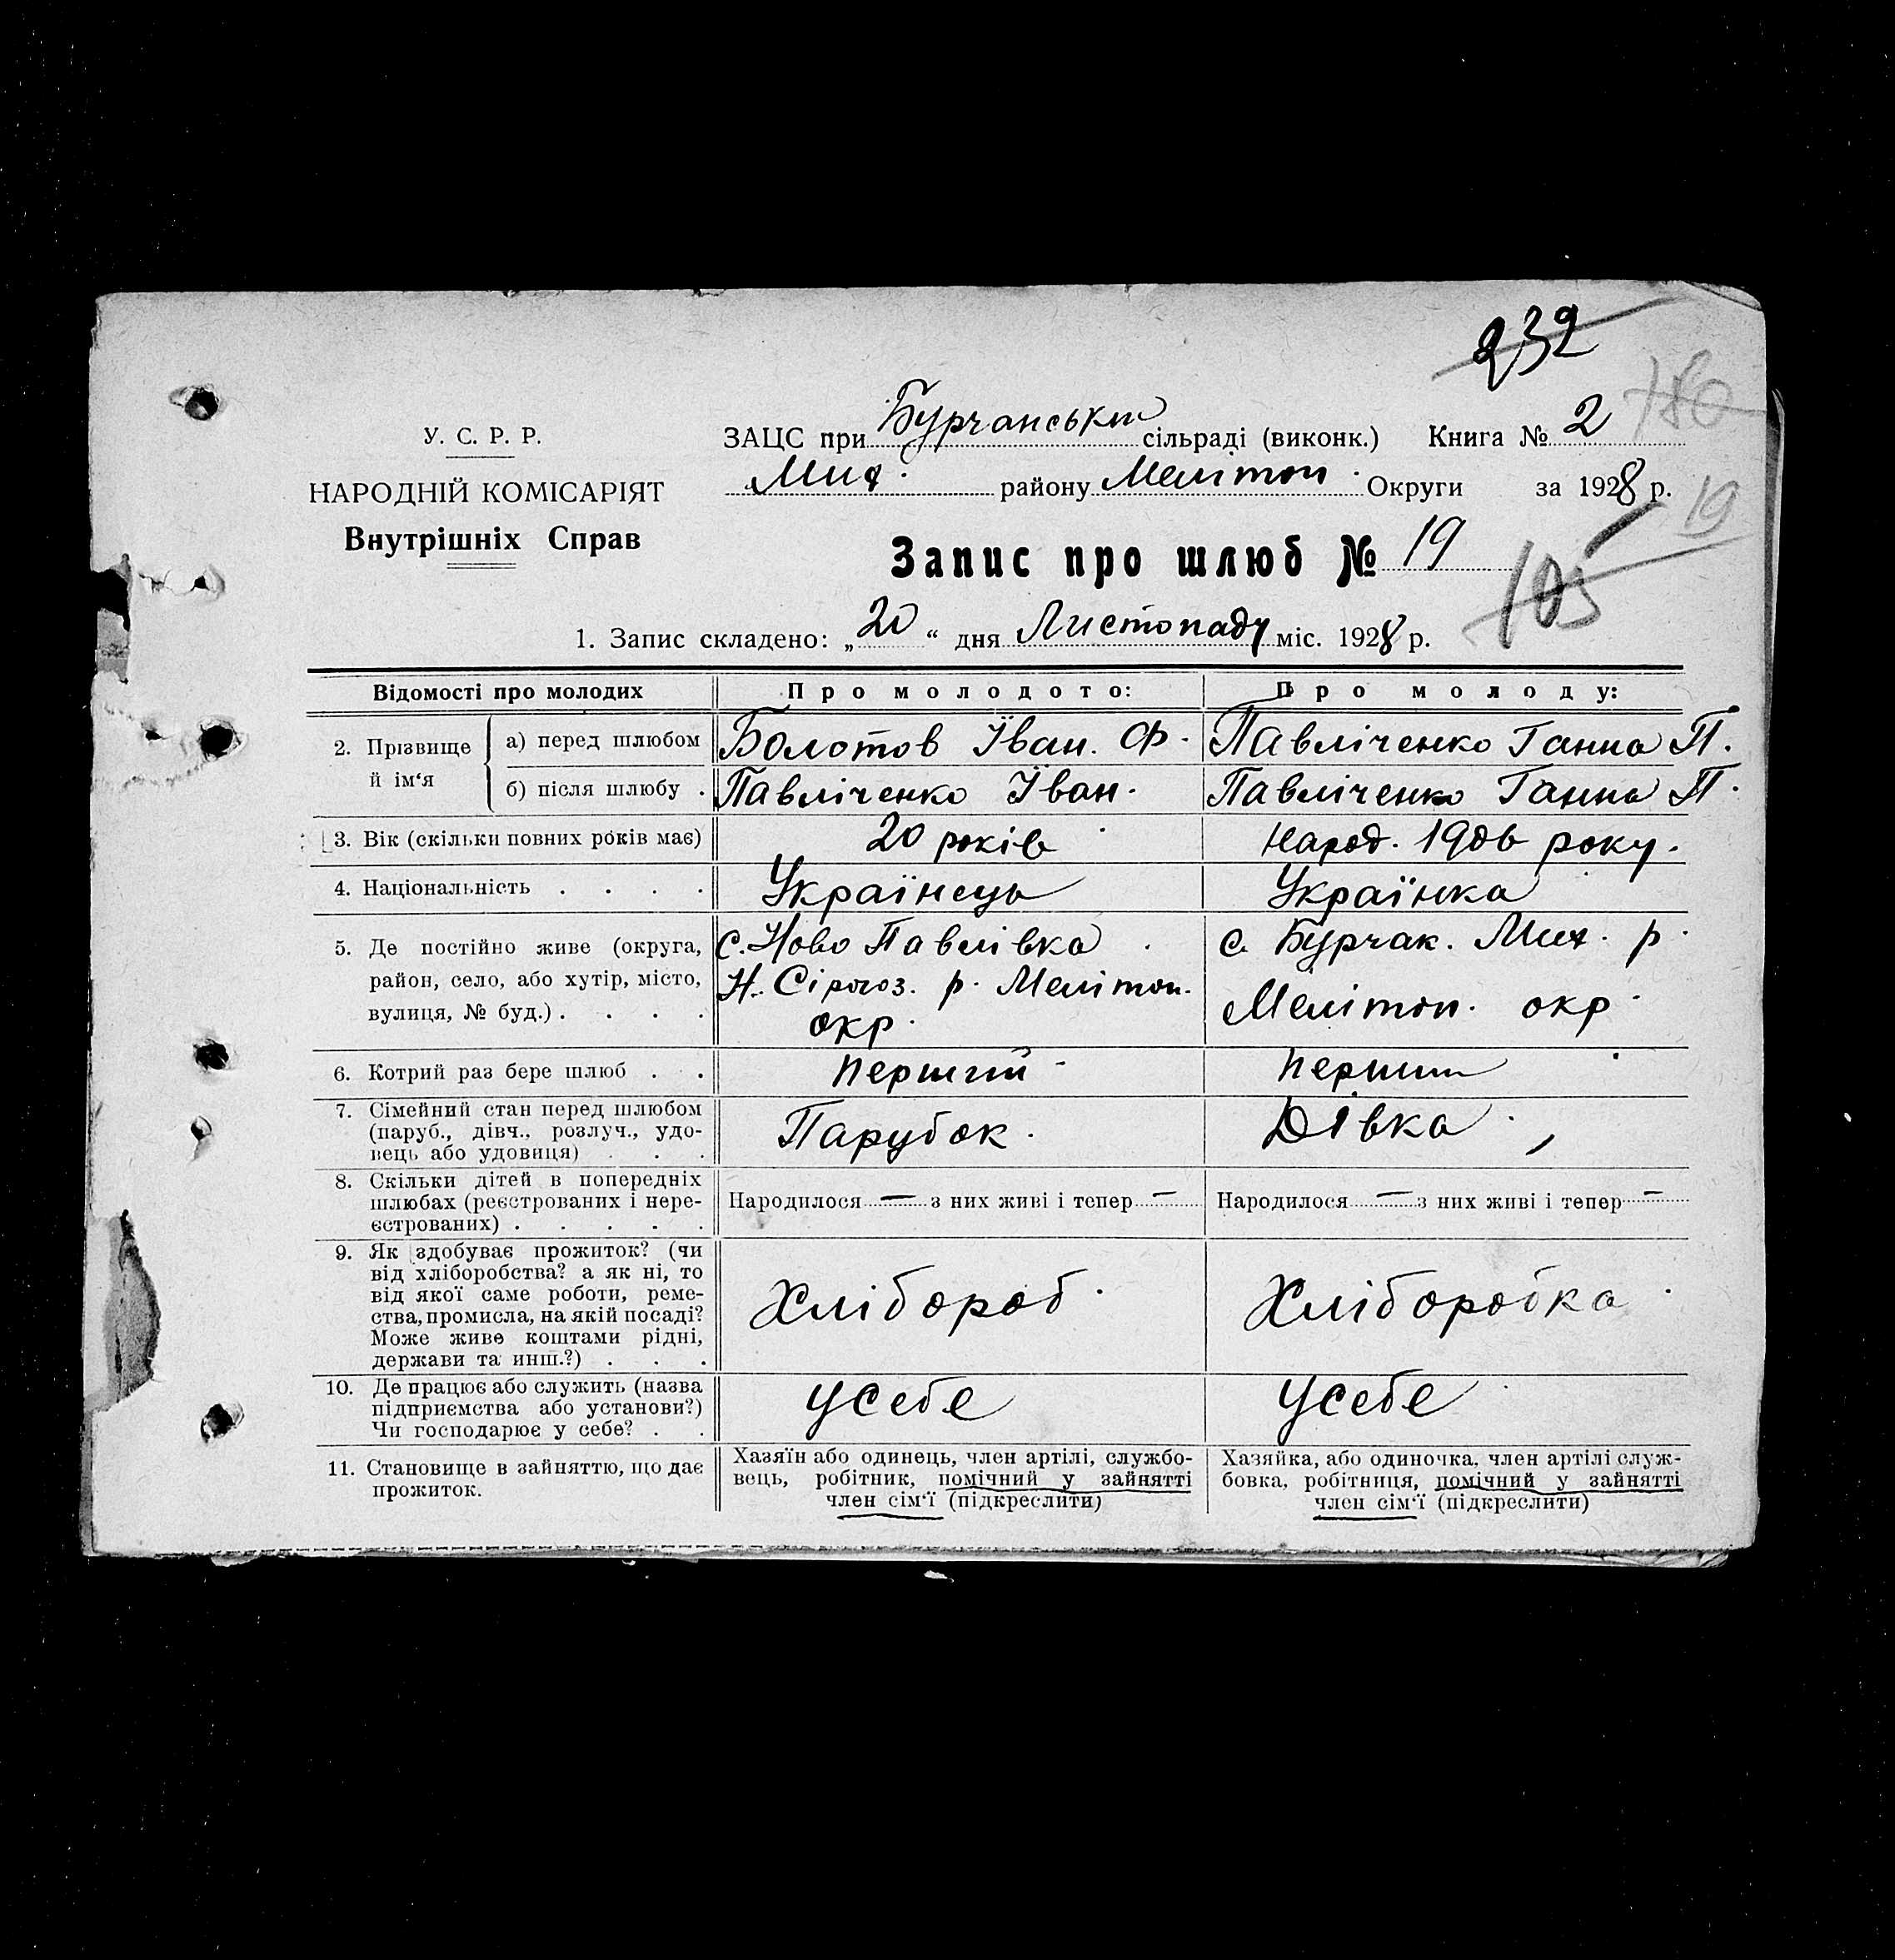 232
180
У. С. Р. Р.
НАРОДНІЙ КОМІСАРІЯТ
Внутрішніх Справ
ЗАЦС при Бурчанській сільраді (виконк.) Книга № 2
Мих. району Мелітоп. Округи за 1928 р.
19
Запис про шлюб № 19
105
1. Запис складено: „20“ дня Листопаду міс. 1928 р.
Відомості про молодих Про молодого: Про молоду:
2. Прізвище й ім‘я
а) перед шлюбом Болотов Іван. Ф. Павліченко Ганна П.
б) після шлюбу . Павліченко Іван. Павліченко Ганна П.
3. Вік (скільки повних років має) 20 років народ. 1906 року.
4. Національність . . . . Українець Українка
5. Де постійно живе (округа, район, село, або хутір, місто, вулиця, № буд.) . . . .
с. Ново Павлівка
Н. Сірогоз. р. Мелітоп.
окр.
с. Бурчак. Мих. р.
Мелітоп. окр.
6. Котрий раз бере шлюб . . Перший Перший
7. Сімейний стан перед шлюбом
(паруб., дівч., розлуч., удо-
вець або удовиця) . . .
Парубок. Дівка
8. Скільки дітей в попередніх
шлюбах (реєстрованих і нере-
єстрованих) . . . . .
Народилося — з них живі і тепер — Народилося — з них живі і тепер —
9. Як здобуває прожиток? (чи
від хліборобства? а як ні, то
від якої саме роботи, реме-
ства, промисла, на якій посаді?
Може живе коштами рідні,
держави та инш.?) . . .
Хлібороб. Хліборобка.
10. Де працює або служить (назва
підприємства або установи?)
Чи господарює у себе? . .
усебе усебе
11. Становище в зайняттю, що дає
прожиток.
Хазяїн або одинець, член артілі, службо-
вець, робітник, помічний у зайнятті
член сім‘ї (підкреслити)
Хазяйка, або одиночка, член артілі служ-
бовка, робітниця, помічний у зайнятті
член сім‘ї (підкреслити)